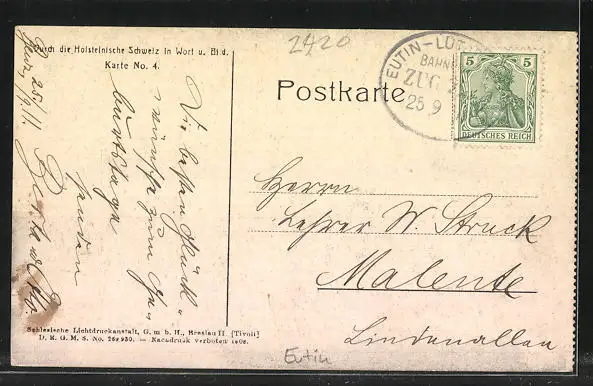 Durch die Holsteinische Schweiz in Wort u. Bild.
Karte No. 4.
2420
Postkarte
EUTIN-LÜ
BAHN
ZUG
25 9
5 5
DEUTSCHES REICH
25/9 11
Die besten Glück-
wünsche zum Ge-
burtstage
senden
Herrn
Lehrer W. Struck
Malente
Lindenallee
Schlesische Lichtdruckanstalt, G. m. b. H., Breslau II. [Tivoli]
D. R. G. M. S. No. 269 930. — Nachdruck verboten 1906.
Eutin